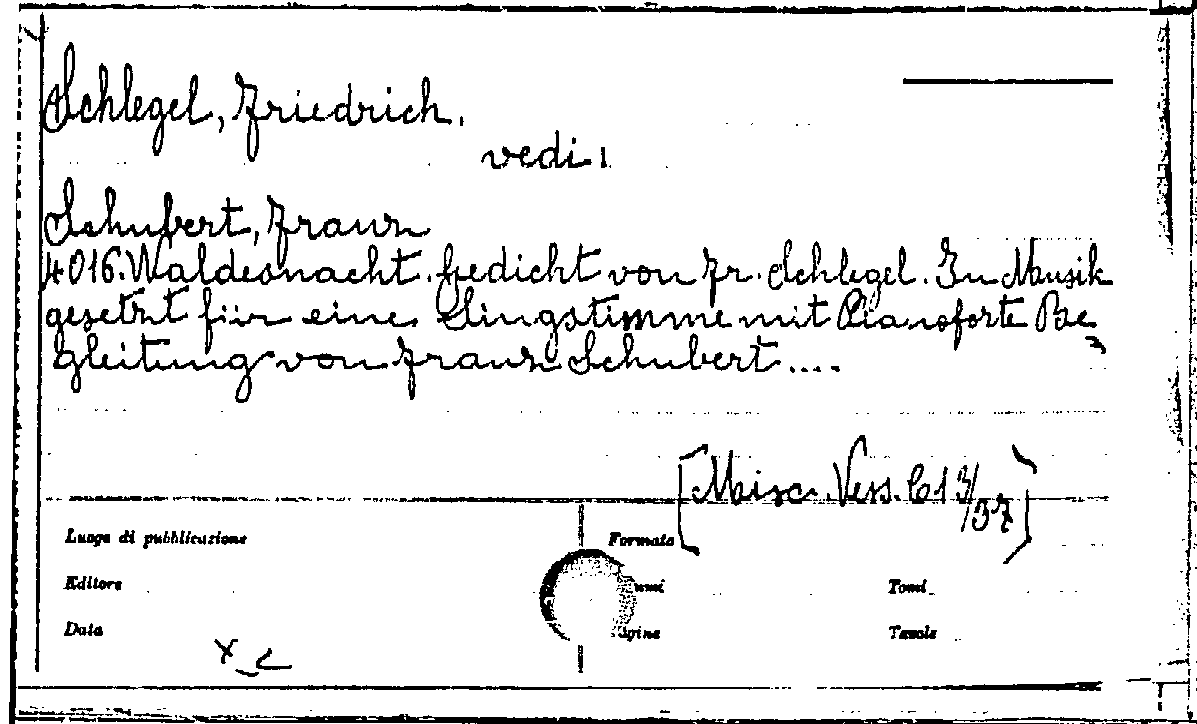 Schlegel, Friedrich.
vedi:
Schubert, Franz
4016. Waldesnacht. Gedicht von Fr. Schlegel. In Musik
gesetzt für eine Singstimme mit Pianoforte Be=
gleitung von Franz Schubert....
[Misc. Vess. C1 3/37]
Luogo di pubblicazione Formato
Editore Tomi
Data Tavole